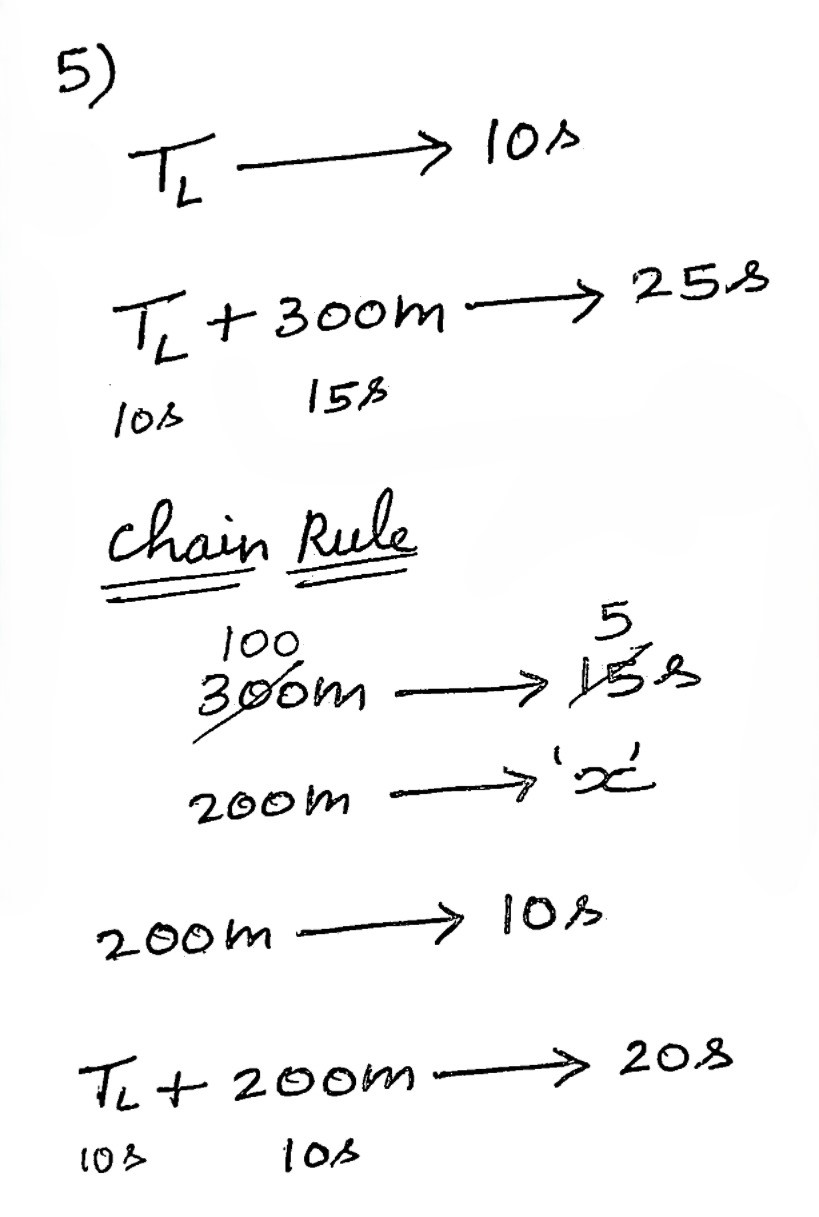 5)
T_L ⟶ 10s
T_L + 300m ⟶ 25s
10s 15s
Chain Rule
100 5
300m ⟶ 15s
200m ⟶ 'x'
200m ⟶ 10s
T_L + 200m ⟶ 20s
10s 10s